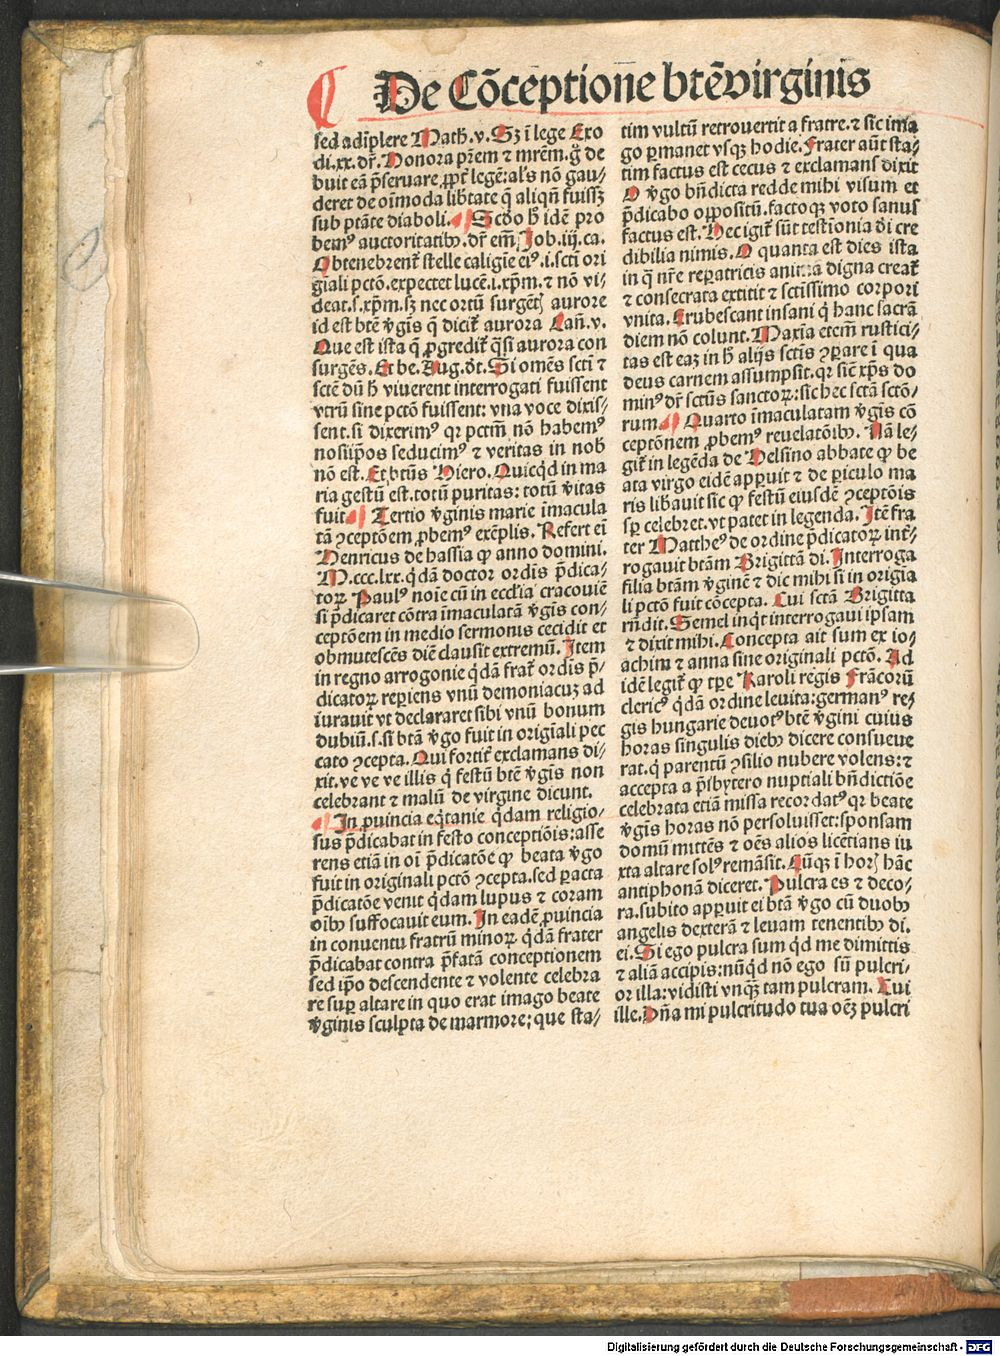 De Cōceptiōne btē virginis
sed adīplere Math. v. Sꝫ ī lege Exo
di. xx. dr̄. Honora pr̄em ⁊ mr̄em. g̊ de
buit eā p̄seruare ꝓpt̄ legē: al's nō gau⸗
deret de oīmoda lib̄tate q̄ aliqn̄ fuissꝫ
sub ptāte diaboli. ¶ Scd̄o h̄ idē pro
bemꝰ auctoritatibꝫ. dr̄ em̄ Job. iij. ca.
Obtenebrent̄ stelle caligīe eiꝰ. i. scti ori
giali pctō. expectet lucē. i. xp̄m. ⁊ nō vi⸗
deat. s. xp̄m. sꝫ nec ortū surgēt aurore
id est btē v̄gīs q̄ dicit̄ aurora Cañ. v.
Que est ista q̄ ꝓgredit̄ q̄si aurora con
surgēs. Et be. Aug. dt. Si omēs scti ⁊
sctē dū h̄ viuerent interrogati fuissent
vtrū sine pctō fuissent: vna voce dixis⸗
sent. si dixerimꝰ qꝛ pctm̄ nō habemꝰ
nosiip̄os seducimꝰ ⁊ veritas in nob̄
nō est. Et btūs Hiero. Quicq̇d in ma
ria gestū est. totū puritas: totū v̄itas
fuit ¶ Tertio v̄ginis marie īmacula
tā ꝯceptōem ꝓbemꝰ exēplis. Refert eī
Henricus de hassia ꝙ anno domini.
M. ccc. lxx. q̇dā doctor ordīs p̄dica⸗
toꝝ Paulꝰ noīe cū in ecclīa cracouiē
si p̄dicaret cōtra īmaculatā v̄gīs con⸗
ceptōem in medio sermonis cecidit et
obmutescēs diē clausit extremū. Item
in regno arrogonie q̇dā frat̄ ordis p̄⸗
dicatoꝝ reꝑiens vnū demoniacuꝫ ad
iurauit vt declararet sibi vnū bonum
dubiū. s. si btā v̄go fuit in origīali pec
cato ꝯcepta. Qui fortit̄ exclamans di⸗
xit. ve ve ve illis q̇ festū btē v̄gīs non
celebrant ⁊ malū de virgine dicunt.
¶ In ꝓuincia eq̇tanie q̇dam religio⸗
sus p̄dicabat in festo conceptiōis: asse
rens etiā in oī p̄dicatōe ꝙ beata v̄go
fuit in originali pctō ꝯcepta. sed ꝑacta
p̄dicatōe venit q̇dam lupus ⁊ coram
oībꝫ suffocauit eum. In eadē ꝓuincia
in conuentu fratrū minoꝝ q̇dā frater
p̄dicabat contra p̄fatā conceptionem
sed ip̄o descendente ⁊ volente celebra
re suꝑ altare in quo erat imago beate
v̄ginis sculpta de marmore; que sta⸗
tim vultū retrouertit a fratre. ⁊ sic ima
go ꝑmanet vsqꝫ hodie. Frater aūt sta⸗
tim factus est cecus ⁊ exclamans dixit
O v̄go bn̄dicta redde mihi visum et
p̄dicabo oppositū. factoqꝫ voto sanus
factus est. Hec igit̄ sūt testīonia di cre
dibilia nimis. O quanta est dies ista
in q̄ nr̄e reꝑatricis anima digna creat̄
⁊ consecrata extitit ⁊ sctīssimo corpori
vnita. Erubescant insani q̇ hanc sacrā
diem nō colunt. Maxīa etem̄ rustici⸗
tas est eaꝫ in h̄ alijs sctīs ꝯꝑare ī qua
deus carnem assumpsit. qꝛ sic̄ xp̄s do
minꝰ dr̄ sctūs sanctoꝝ: sic hec sctā sctō⸗
rum. ¶ Quarto īmaculatam v̄gīs cō
ceptōnem ꝓbemꝰ reuelatōibꝫ. Nā le⸗
git̄ in legēda de Helsino abbate ꝙ be
ata virgo eidē apparuit ⁊ de ꝑiculo ma
ris libauit sic ꝙ festū eiusdē ꝯceptōis
sꝑ celebret. vt patet in legenda. Itē fra
ter Mattheꝰ de ordine p̄dicatoꝝ int̄⸗
rogauit btām Brigittā di. Interroga
filia btām v̄ginē ⁊ dic mihi si in origīa
li pctō fuit cōcepta. Cui sctā Brigitta
rn̄dit. Semel inq̇t interrogaui ipsam
⁊ dixit mihi. Concepta ait sum ex io⸗
achim ⁊ anna sine originali pctō. Ad
idē legit̄ ꝙ tꝑe Karoli regis Frācorū
clericꝰ q̇dā ordine leuita: germanꝰ re⸗
gis hungarie deuotꝰ btē v̄gini cuius
horas singulis diebꝫ dicere consueue
rat. q̇ parentū ꝯsilio nubere volens: ⁊
accepta a p̄sbytero nuptiali bn̄dictiōe
celebrata etiā missa recordatꝰ qꝛ beate
v̄gīs horas nō persoluisset: sponsam
domū mittēs ⁊ oēs alios licētians iu
xta altare solꝰ remāsit. Cūqꝫ ī horꝫ hāc
antiphonā diceret. Pulcra es ⁊ deco⸗
ra. subito apparuit ei btā v̄go cū duobꝫ
angelis dexterā ⁊ leuam tenentibꝫ di.
ei. Si ego pulcra sum q̇d me dimittis
⁊ aliā accipis: nūq̇d nō ego sū pulcri⸗
or illa: vidisti vnqꝫ tam pulcram. Cui
ille. Dn̄a mi pulcritudo tua oēꝫ pulcri
Digitalisierung gefördert durch die Deutsche Forschungsgemeinschaft - DFG